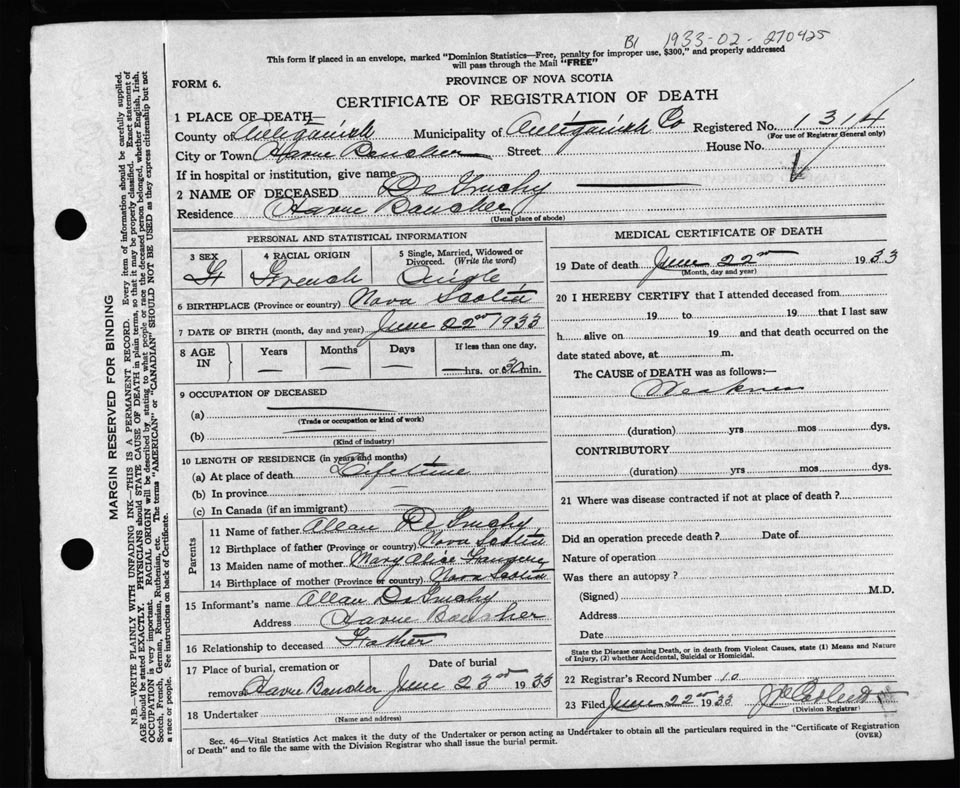 B1 1933-02-270425
This form if placed in an envelope, marked "Dominion Statistics—Free, penalty for improper use, $300," and properly addressed
will pass through the Mail "FREE"
FORM 6.
PROVINCE OF NOVA SCOTIA
CERTIFICATE OF REGISTRATION OF DEATH
1 PLACE OF DEATH—
County of Antigonish Municipality of Antigonish Co Registered No. 1314
(For use of Registrar General only)
City or Town Havre Boucher Street House No.
If in hospital or institution, give name
2 NAME OF DECEASED De Gruchy
Residence Havre Boucher
(Usual place of abode)
PERSONAL AND STATISTICAL INFORMATION
3 SEX 4 RACIAL ORIGIN 5 Single, Married, Widowed or Divorced. (Write the word)
French Single
6 BIRTHPLACE (Province or country) Nova Scotia
7 DATE OF BIRTH (month, day and year) June 22nd 1933
8 AGE IN Years Months Days If less than one day,
— — — — hrs. or 30 min.
9 OCCUPATION OF DECEASED
(a)
(Trade or occupation or kind of work)
(b)
(Kind of industry)
10 LENGTH OF RESIDENCE (in years and months)
(a) At place of death Lifetime
(b) In province
(c) In Canada (if an immigrant)
Parents
11 Name of father Allan De Gruchy
12 Birthplace of father (Province or country) Nova Scotia
13 Maiden name of mother Mary Alice
14 Birthplace of mother (Province or country) Nova Scotia
15 Informant's name Allan De Gruchy
Address Havre Boucher
16 Relationship to deceased Father
17 Place of burial, cremation or Date of burial
removal Havre Boucher June 23rd 1933
18 Undertaker
(Name and address)
MEDICAL CERTIFICATE OF DEATH
19 Date of death June 22nd 1933
(Month, day and year)
20 I HEREBY CERTIFY that I attended deceased from
19 to 19 that I last saw
h alive on 19 and that death occurred on the
date stated above, at m.
The CAUSE of DEATH was as follows:—
Weakness
(duration) yrs mos dys.
CONTRIBUTORY
(duration) yrs mos dys.
21 Where was disease contracted if not at place of death?
Did an operation precede death? Date of
Nature of operation
Was there an autopsy?
(Signed) M.D.
Address
Date
State the Disease causing Death, or in death from Violent Causes, state (1) Means and Nature
of Injury, (2) whether Accidental, Suicidal or Homicidal.
22 Registrar's Record Number 10
23 Filed June 22nd 1933
(Division Registrar)
Sec. 46—Vital Statistics Act makes it the duty of the Undertaker or person acting as Undertaker to obtain all the particulars required in the "Certificate of Registration
of Death" and to file the same with the Division Registrar who shall issue the burial permit.
(OVER)
MARGIN RESERVED FOR BINDING
N.B.—WRITE PLAINLY WITH UNFADING INK—THIS IS A PERMANENT RECORD. Every item of information should be carefully supplied.
AGE should be stated EXACTLY. PHYSICIANS should STATE CAUSE OF DEATH in plain terms, so that it may be properly classified. Exact statement of
OCCUPATION is very important. RACIAL ORIGIN will be described by stating to what people or race the deceased person belonged, whether English, Irish,
Scotch, French, German, Russian, Ruthenian, etc. The terms "AMERICAN" or "CANADIAN" SHOULD NOT BE USED as they express citizenship but not
a race or people. See instructions on back of Certificate.